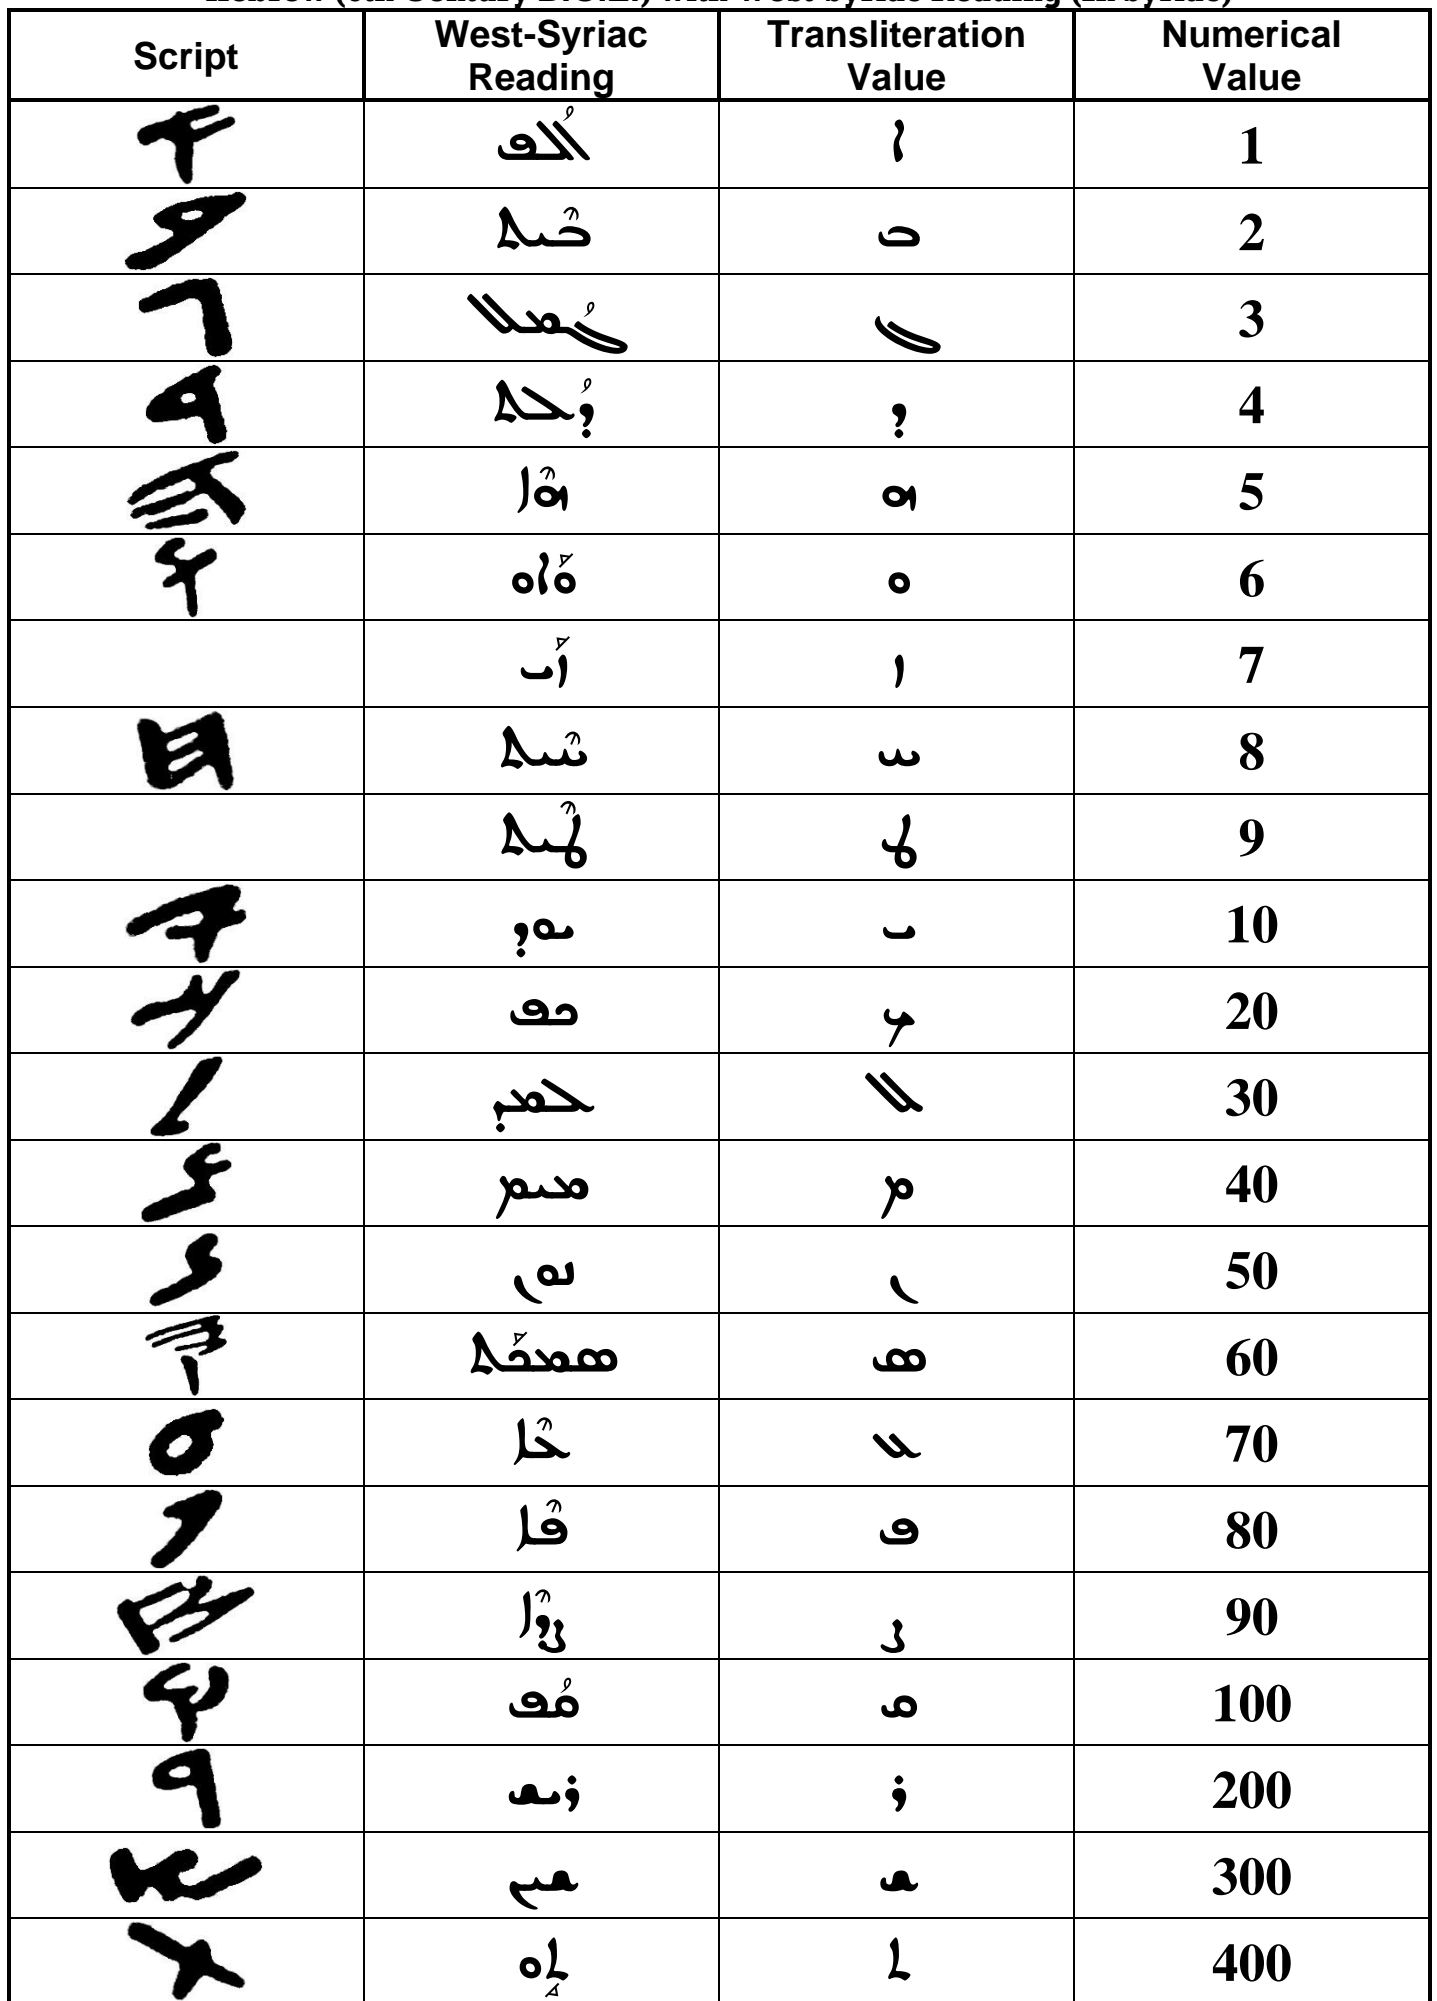 Script West-Syriac Reading Transliteration Value Numerical Value
𐤀 ܐܳܠܦ ܐ 1
𐤁 ܒܶܝܬ ܒ 2
𐤂 ܓܳܡܠ ܓ 3
𐤃 ܕܳܠܬ ܕ 4
𐤄 ܗܶܐ ܗ 5
𐤅 ܘܰܐܘ ܘ 6
ܙܰܝ ܙ 7
𐤇 ܚܶܝܬ ܚ 8
ܛܶܝܬ ܛ 9
𐤉 ܝܘܕ ܝ 10
𐤊 ܟܦ ܟ 20
𐤋 ܠܡܕ ܠ 30
𐤌 ܡܝܡ ܡ 40
𐤍 ܢܘܢ ܢ 50
𐤎 ܣܡܟܰܬ ܣ 60
𐤏 ܥܶܐ ܥ 70
𐤐 ܦܶܐ ܦ 80
𐤑 ܨܕܶܐ ܨ 90
𐤒 ܩܳܦ ܩ 100
𐤓 ܪܝܫ ܪ 200
𐤔 ܫܝܢ ܫ 300
𐤕 ܬܱܘ ܬ 400